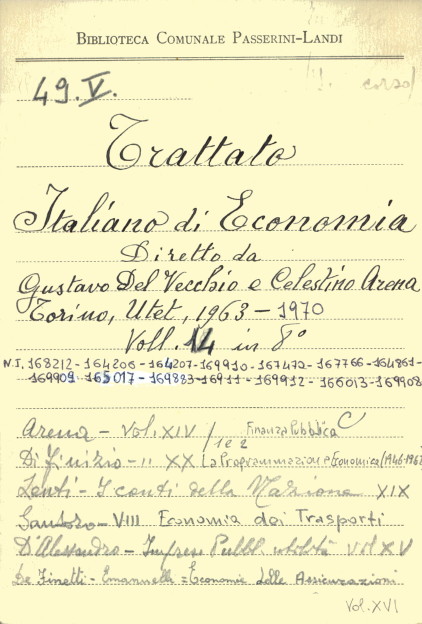 BIBLIOTECA COMUNALE PASSERINI-LANDI
49.V.
corso
Trattato
Italiano di Economia
Diretto da
Gustavo Del Vecchio e Celestino Arena
Torino, Utet, 1963-1970
Voll. 14 in 8°
N.I. 168212-164206-164207-169910-167472-167766-164861-
169909-165017-169883-16911-169912-166013-169908
Arena - Vol. XIV / 1 e 2 Finanza Pubblica
Di Finizio - 11 XX La Programmazione Economica
Lenti - I conti della Nazione XIX
Santoro - VIII Economia dei Trasporti
D'Alessandro - Imprese Pubbl. utilità Vol XV
De Finetti - Emanuelli = Economia delle Assicurazioni
Vol. XVI